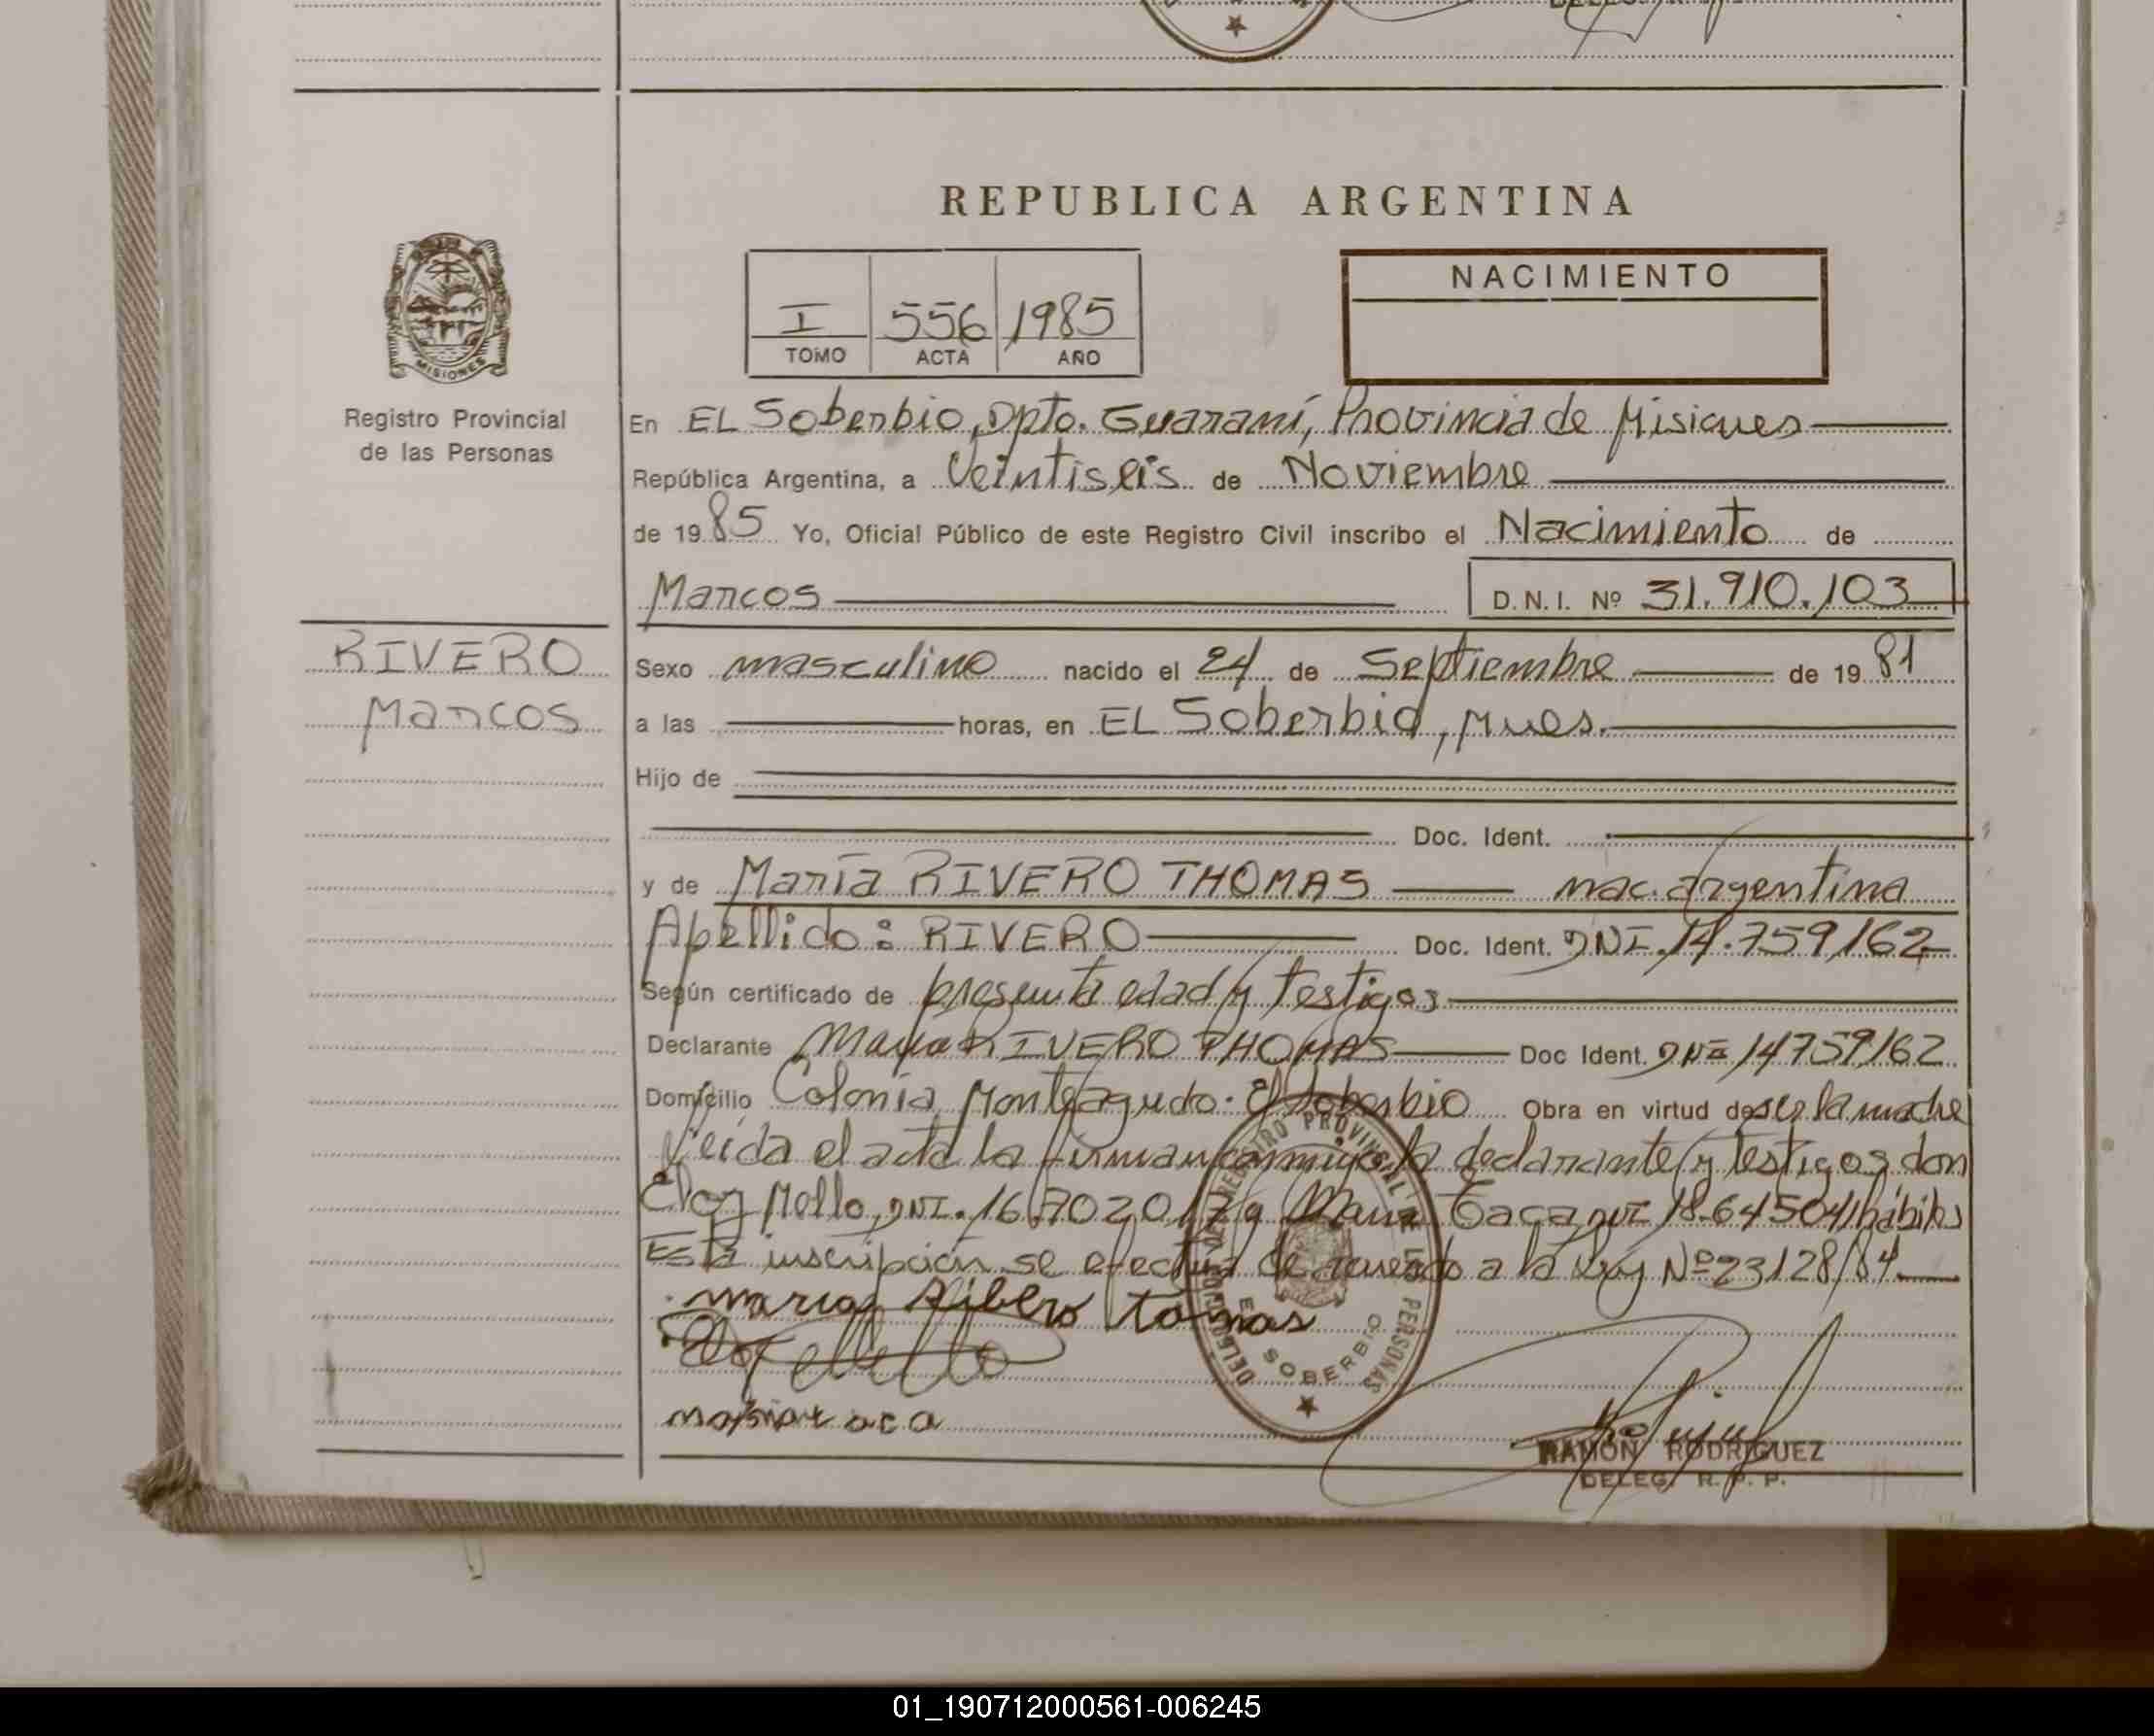 REPUBLICA ARGENTINA
MISIONES
Registro Provincial
de las Personas
RIVERO
Marcos
I 556 1985
TOMO ACTA AÑO
NACIMIENTO
En EL Soberbio, Dpto. Guaraní, Provincia de Misiones
República Argentina, a Veintiseis de Noviembre
de 1985 Yo, Oficial Público de este Registro Civil inscribo el Nacimiento de
Marcos D.N.I. Nº 31.910.103
Sexo masculino nacido el 24 de Septiembre de 1981
a las horas, en EL Soberbio, Mnes.
Hijo de
Doc. Ident.
y de María RIVERO THOMAS nac. argentina
Apellido: RIVERO Doc. Ident. DNI.14.759162
Según certificado de presunta edad y testigos
Declarante María RIVERO THOMAS Doc Ident. DNI 14759162
Domicilio Colonia Monteagudo. El Soberbio Obra en virtud de ser la madre
Leída el acta la firman conmigo la declarante y testigos don
Eloy Mello, DNI. 16.702017 y Maria Taca DNI 18.645041 hábiles
Esta inscripción se efectua de acuerdo a la Ley Nº 23128/84
maria Ribero tomas
REGISTRO PROVINCIAL DE LAS PERSONAS
EL SOBERBIO
RAMON RODRIGUEZ
DELEG. R. P. P.
01_190712000561-006245